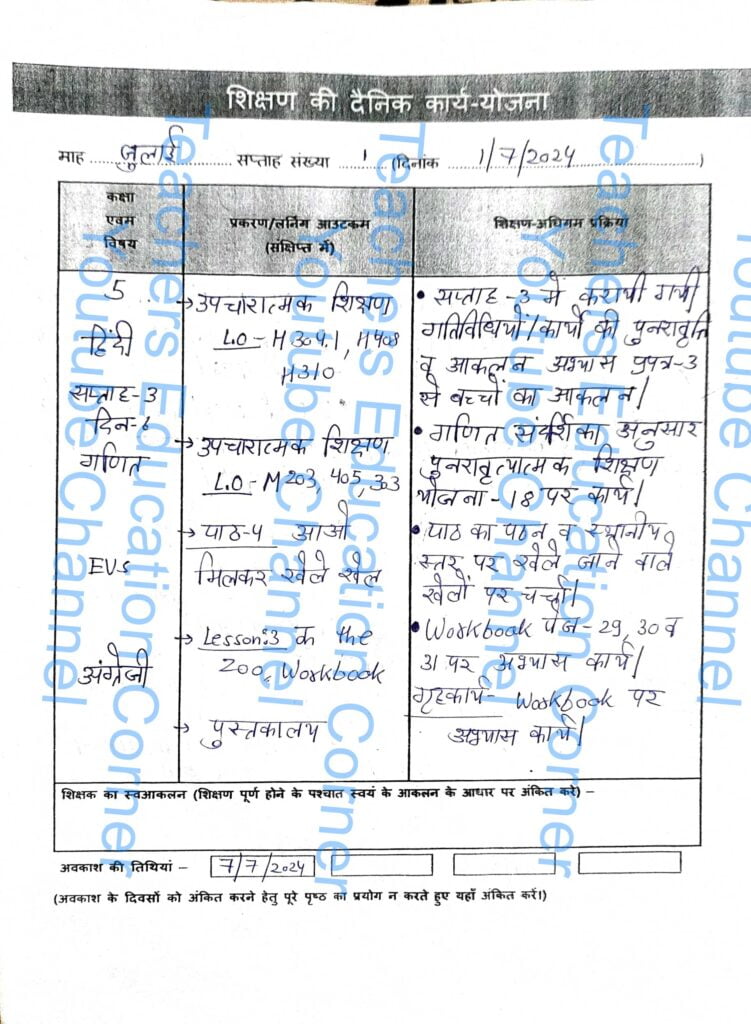 शिक्षण की दैनिक कार्य-योजना
माह ... जुलाई ... सप्ताह संख्या ... 1 (दिनांक ... 1/7/2024 ...)
कक्षा
एवम
विषय
प्रकरण/लर्निंग आउटकम
(संक्षिप्त में)
शिक्षण-अधिगम प्रक्रिया
5
हिंदी
सप्ताह-3
दिन-6
→ उपचारात्मक शिक्षण
L.O - H304.1, H408
H310
• सप्ताह-3 में करायी गयी
गतिविधियों/कार्यों की पुनरावृत्ति
व आकलन अभ्यास प्रपत्र-3
से बच्चों का आकलन।
गणित
→ उपचारात्मक शिक्षण
L.O - M203, 405, 303
• गणित संदर्शिका अनुसार
पुनरावृत्यात्मक शिक्षण
योजना-18 पर कार्य।
EVS
→ पाठ-4 आओ
मिलकर खेले खेल
• पाठ का पठन व स्थानीय
स्तर पर खेले जाने वाले
खेलों पर चर्चा।
अंग्रेजी
→ Lesson:3 In the
Zoo, Workbook
• Workbook पेज-29, 30 व
31 पर अभ्यास कार्य।
गृहकार्य- Workbook पर
अभ्यास कार्य।
→ पुस्तकालय
शिक्षक का स्वआकलन (शिक्षण पूर्ण होने के पश्चात स्वयं के आकलन के आधार पर अंकित करे) –
अवकाश की तिथियां – 7/7/2024
(अवकाश के दिवसों को अंकित करने हेतु पूरे पृष्ठ का प्रयोग न करते हुए यहाँ अंकित करें।)
Teachers Education Corner
Youtube Channel
Teachers Education Corner
Youtube Channel
Teachers Education Corner
Youtube Channel